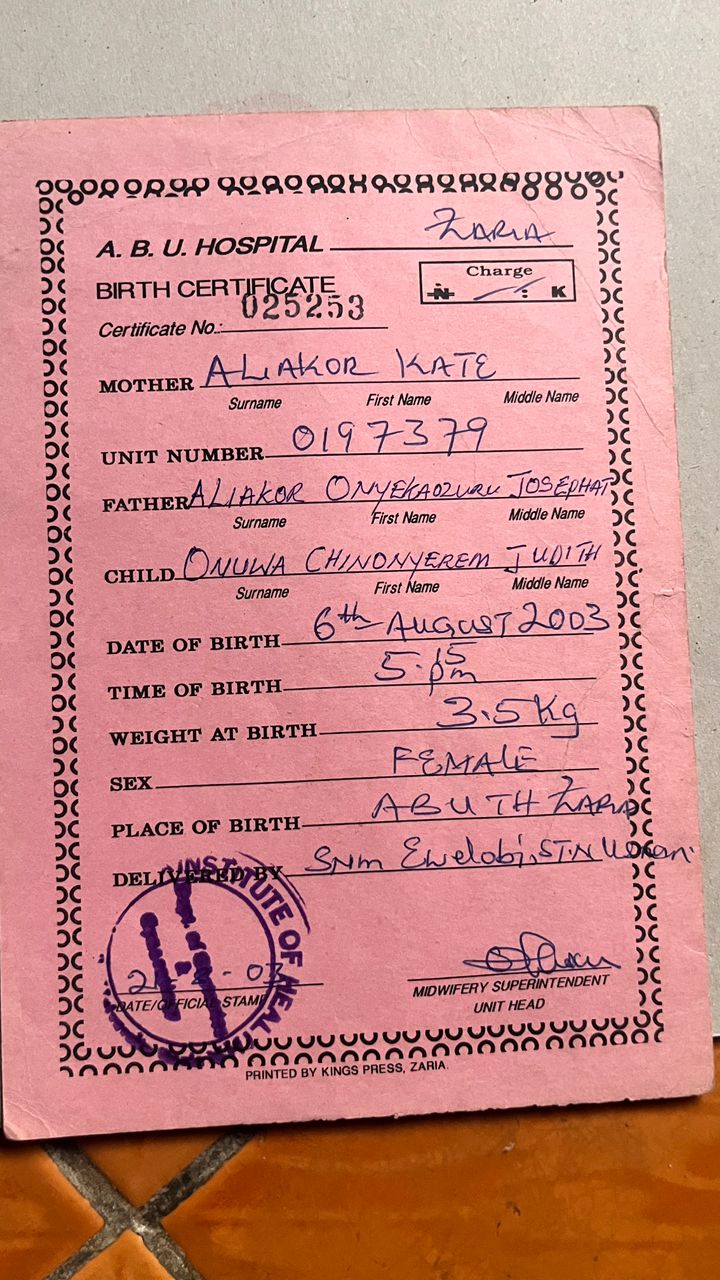 A. B. U. HOSPITAL ZARIA
BIRTH CERTIFICATE
Charge
N : K
Certificate No.: 025253
MOTHER ALIAKOR KATE
Surname First Name Middle Name
UNIT NUMBER 0197379
FATHER ALIAKOR ONYEKAOZURU JOSEPHAT
Surname First Name Middle Name
CHILD ONUWA CHINONYEREM JUDITH
Surname First Name Middle Name
DATE OF BIRTH 6th AUGUST 2003
TIME OF BIRTH 5.15 pm
WEIGHT AT BIRTH 3.5Kg
SEX FEMALE
PLACE OF BIRTH ABUTH ZARIA
DELIVERED BY SNM
INSTITUTE OF
DATE/OFFICIAL STAMP
MIDWIFERY SUPERINTENDENT
UNIT HEAD
PRINTED BY KINGS PRESS, ZARIA.